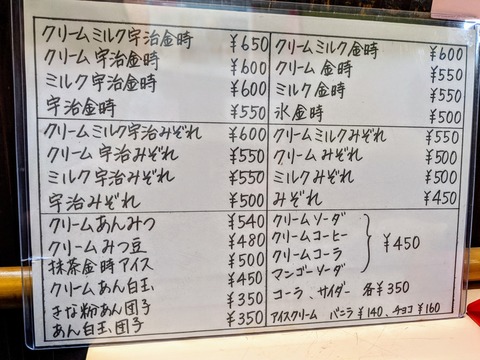 クリームミルク宇治金時 ¥650
クリーム宇治金時 ¥600
ミルク宇治金時 ¥600
宇治金時 ¥550
クリームミルク金時 ¥600
クリーム金時 ¥550
ミルク金時 ¥550
氷金時 ¥500
クリームミルク宇治みぞれ ¥600
クリーム宇治みぞれ ¥550
ミルク宇治みぞれ ¥550
宇治みぞれ ¥500
クリームミルクみぞれ ¥550
クリームみぞれ ¥500
ミルクみぞれ ¥500
みぞれ ¥450
クリームあんみつ ¥540
クリームみつ豆 ¥480
抹茶金時アイス ¥500
クリームあん白玉 ¥450
きな粉あん団子 ¥350
あん白玉、団子 ¥350
クリームソーダ
クリームコーヒー
クリームコーラ
マンゴーソーダ
¥450
コーラ、サイダー 各¥350
アイスクリーム バニラ¥140、チョコ¥160